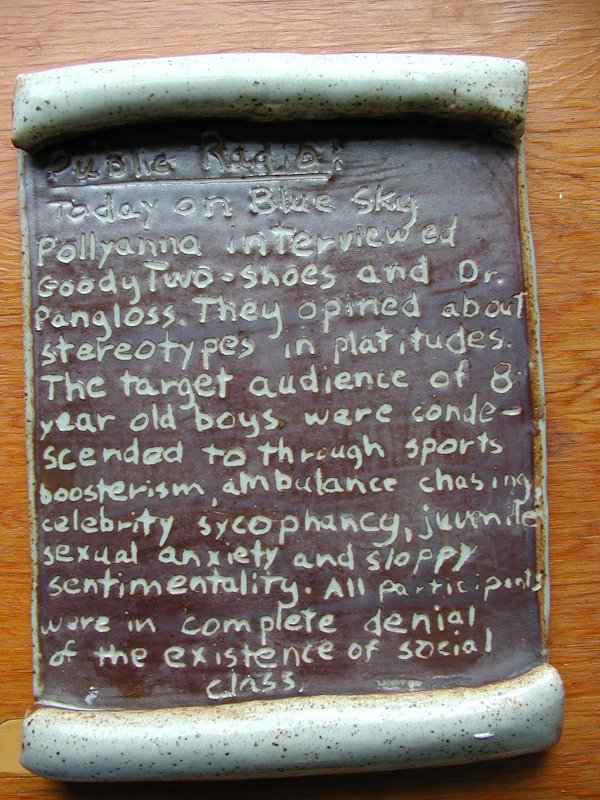 Public Radio:
Today on Blue Sky
Pollyanna interviewed
Goody Two-shoes and Dr.
Pangloss. They opined about
stereotypes in platitudes.
The target audience of 8
year old boys were conde-
scended to through sports
boosterism, ambulance chasing,
celebrity sycophancy, juvenile
sexual anxiety and sloppy
sentimentality. All participants
were in complete denial
of the existence of social
class.